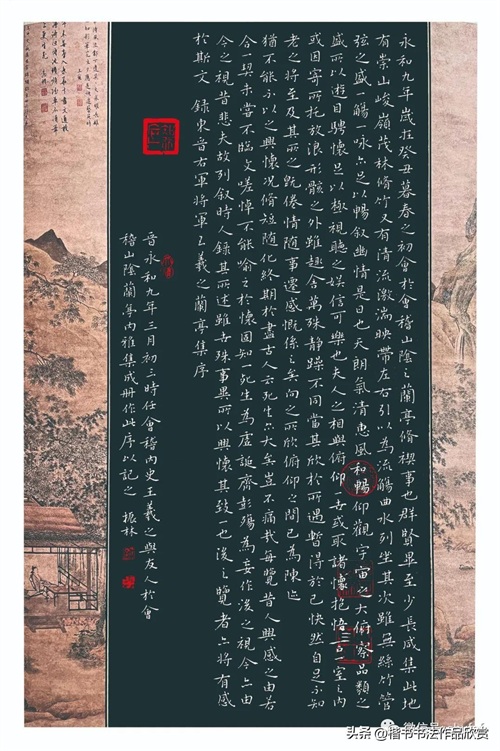 永和九年歲在癸丑暮春之初會於會稽山陰之蘭亭脩禊事也群賢畢至少長咸集此地
有崇山峻嶺茂林脩竹又有清流激湍映帶左右引以為流觴曲水列坐其次雖無絲竹管
弦之盛一觴一咏亦足以暢叙幽情是日也天朗氣清惠風和暢仰觀宇宙之大俯察品類之
盛所以遊目騁懷足以極視聽之娛信可樂也夫人之相與俯仰一世或取諸懷抱悟言一室之內
或因寄所托放浪形骸之外雖趣舍萬殊靜躁不同當其欣於所遇暫得於己快然自足不知
老之將至及其所之既倦情隨事遷感慨係之矣向之所欣俯仰之間已為陳迹
猶不能不以之興懷況脩短隨化終期於盡古人云死生亦大矣豈不痛哉每覽昔人興感之由若
合一契未嘗不臨文嗟悼不能喻之於懷固知一死生為虛誕齊彭殤為妄作後之視今亦由
今之視昔悲夫故列叙時人錄其所述雖世殊事異所以興懷其致一也後之覽者亦將有感
於斯文 錄東晉右軍將軍王羲之蘭亭集序
晉永和九年三月初三時任會稽內史王羲之與友人於會
稽山陰蘭亭內雅集成冊作此序以記之 振林
头条 @楷书书法作品欣赏